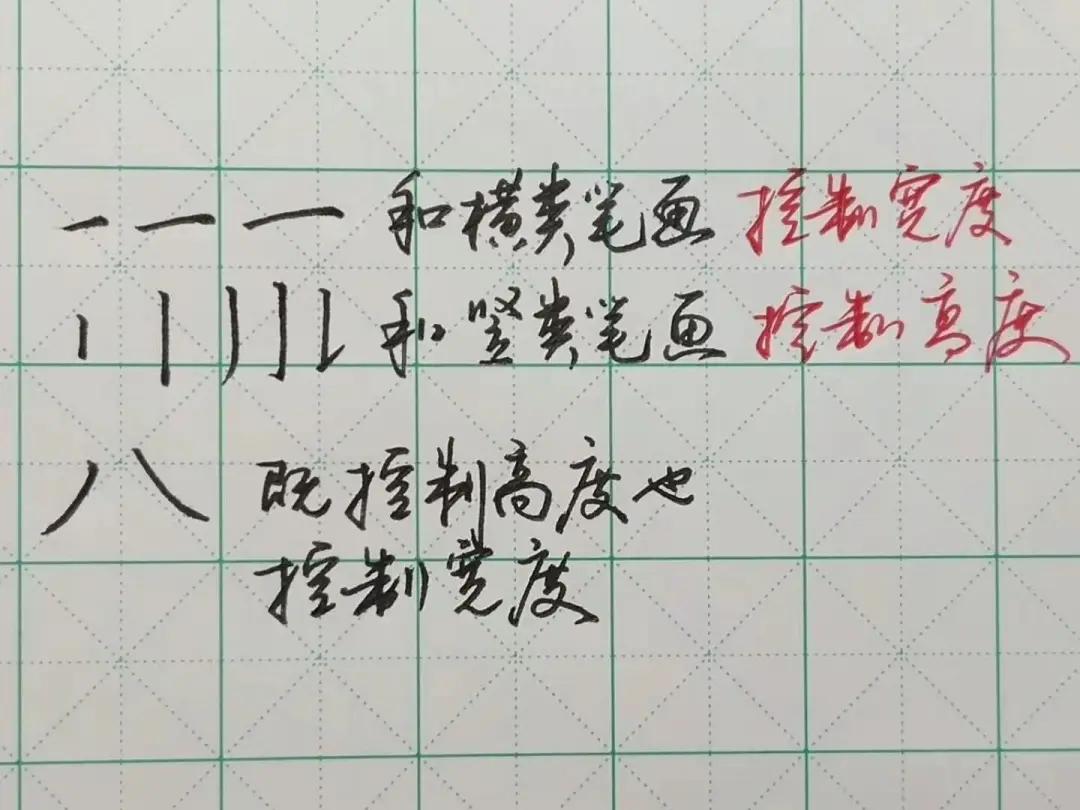 一 一 一 和横类笔画 控制宽度
和竖类笔画 控制高度
八 既控制高度也
控制宽度